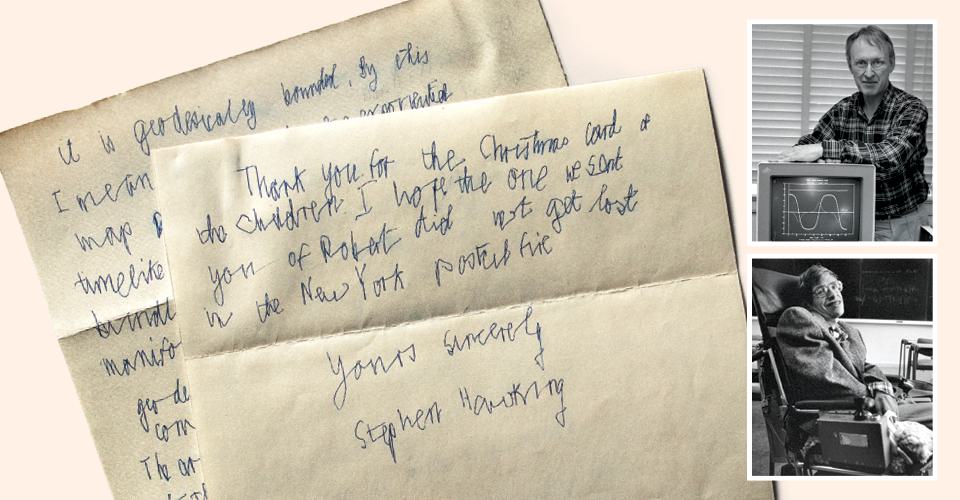 it is geodesically bounded. By this
I mean
map
timelike
manifo
geode
com
The
Thank you for the Christmas card of
the children I hope the one we sent
you of Robert did not get lost
in the New York postal fire
Yours sincerely
Stephen Hawking